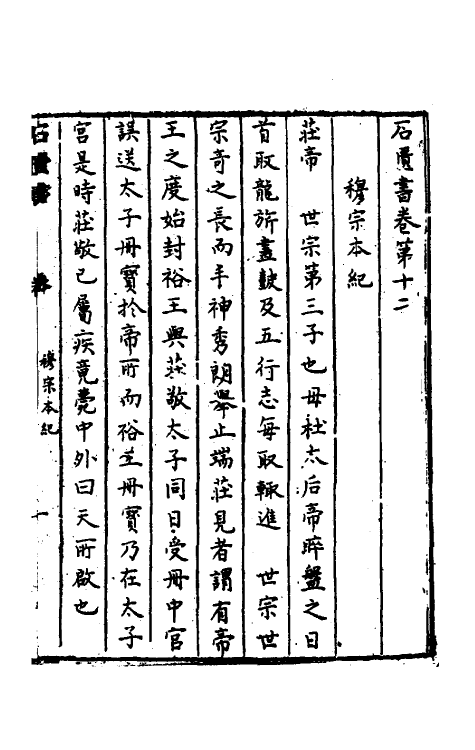 石匱書卷第十二
穆宗本紀
莊帝　世宗第三子也毋杜太后帝晬盤之日
首取龍旂畫鼓及五行志每取輒進　世宗世
宗奇之長而丰神秀朗舉止端莊見者謂有帝
王之度始封裕王與莊敬太子同日受冊中官
誤送太子冊寶於帝所而裕王冊寶乃在太子
宮是時莊敬已屬疾竟薨中外曰天所啟也
石匱書　卷　穆宗本紀　一